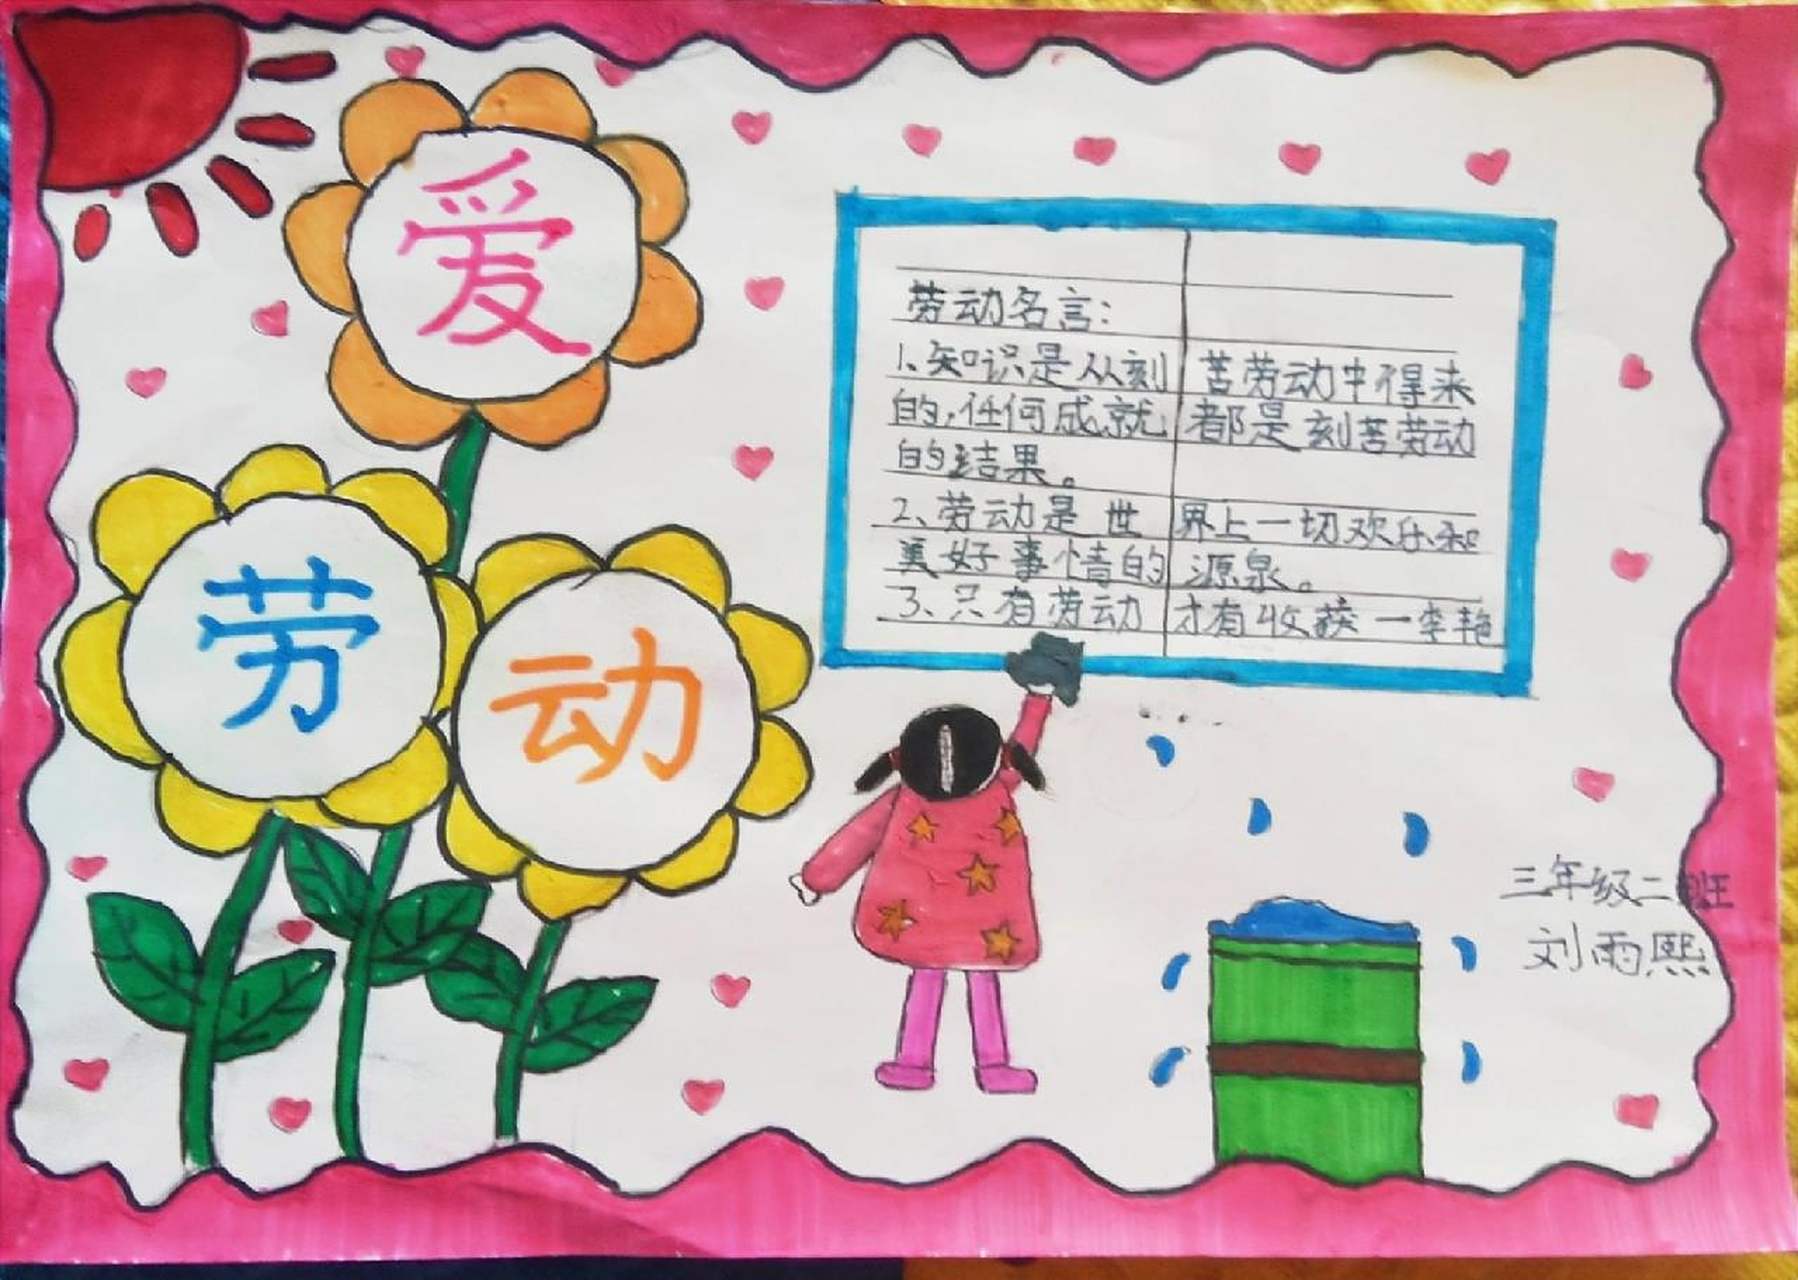 爱
劳
动
劳动名言：
1、知识是从刻苦劳动中得来
的，任何成就都是刻苦劳动
的结果。
2、劳动是世界上一切欢乐和
美好事情的源泉。
3、只有劳动才有收获一李艳
三年级二班
刘雨熙